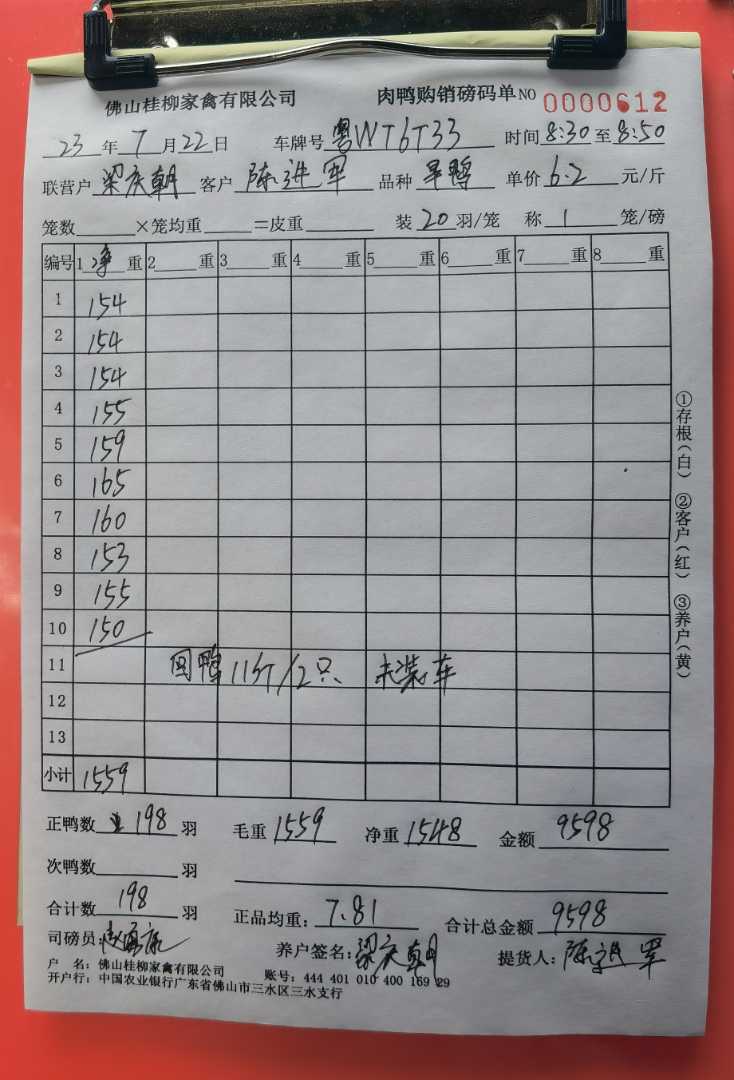 佛山桂柳家禽有限公司 肉鸭购销磅码单 NO 0000612
23 年 7 月 22 日 车牌号 粤WT6T33 时间 8:30 至 8:50
联营户 梁庆朝 客户 陈进军 品种 单价 6.2 元/斤
笼数 ×笼均重 =皮重 装 20 羽/笼 称 1 笼/磅
编号 1 净 重 2 重 3 重 4 重 5 重 6 重 7 重 8 重
1 154
2 154
3 154
4 155
5 159
6 165
7 160
8 153
9 155
10 150
11 回鸭 11斤/2只 未装车
12
13
小计 1559
正鸭数 198 羽 毛重 1559 净重 1548 金额 9598
次鸭数 羽
合计数 198 羽 正品均重: 7.81 合计总金额 9598
司磅员: 养户签名: 梁庆朝 提货人: 陈进军
户 名: 佛山桂柳家禽有限公司 账号: 444 401 010 400 169 29
开户行: 中国农业银行广东省佛山市三水区三水支行
①存根(白) ②客户(红) ③养户(黄)